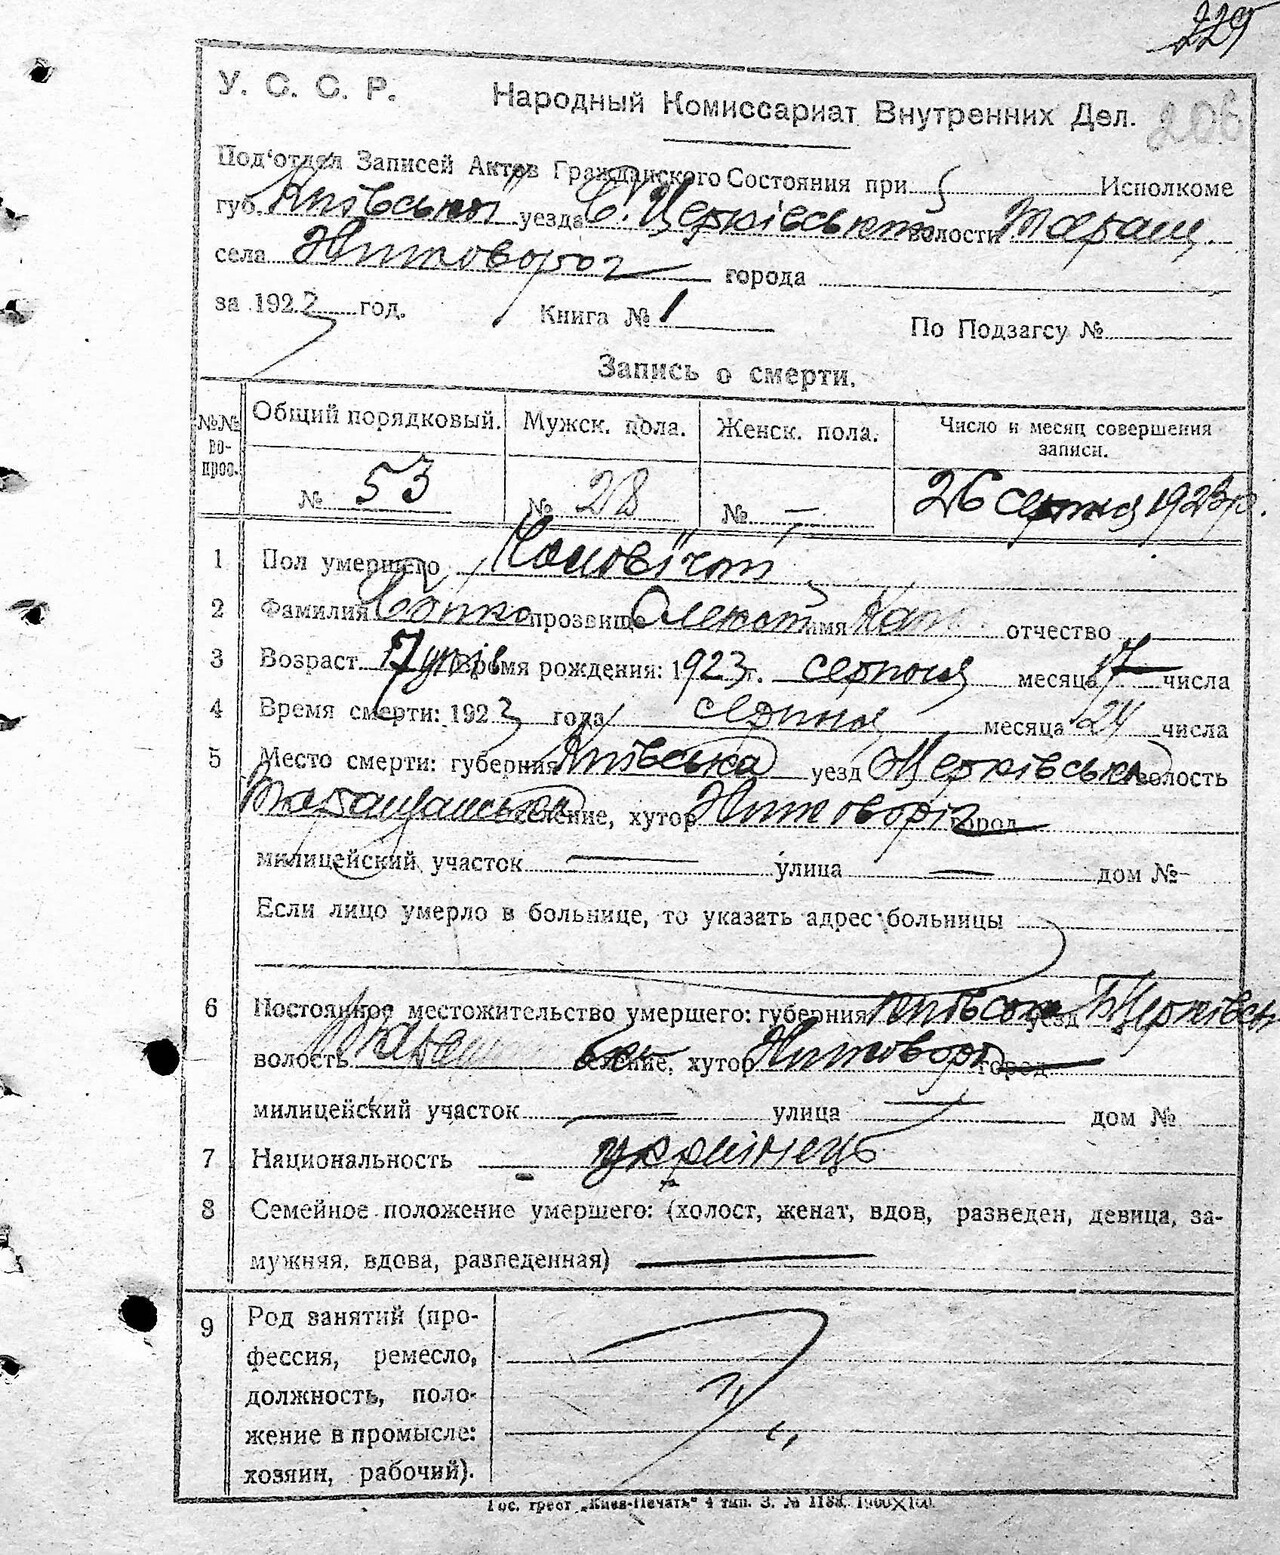 229
У. С. С. Р. Народный Комиссариат Внутренних Дел. 206
Под'отдел Записей Актов Гражданского Состояния при Исполкоме
губ. Київської уезда Б. Церківської волости Таращ.
села Житовоrог города
за 1923 год. Книга № 1 По Подзагсу №
Запись о смерти.
№№ вопрос. Общий порядковый. Мужск. пола. Женск. пола. Число и месяц совершения записи.
№ 53 № 28 № — 26 серпня 1923 р.
1 Пол умершего Чоловічий
2 Фамилия прозвище Олексій имя отчество
3 Возраст 7 днів Время рождения: 1923 г. серпня месяца 17 числа
4 Время смерти: 1923 года серпня месяца 24 числа
5 Место смерти: губерния Київська уезд Б Церківськ волость
Таращанська селение, хутор Житоворіг город
милицейский участок — улица — дом № —
Если лицо умерло в больнице, то указать адрес больницы
6 Постоянное местожительство умершего: губерния Київська уезд Б Церківськ
волость селение, хутор Житоворіг город
милицейский участок — улица — дом №
7 Национальность українець
8 Семейное положение умершего: (холост, женат, вдов, разведен, девица, за-
мужняя, вдова, разведенная) —
9 Род занятий (про-
фессия, ремесло,
должность, поло-
жение в промысле:
хозяин, рабочий).
Гос. трест „Киев-Печать" 4 тип. З. № 1188. 1900×100.